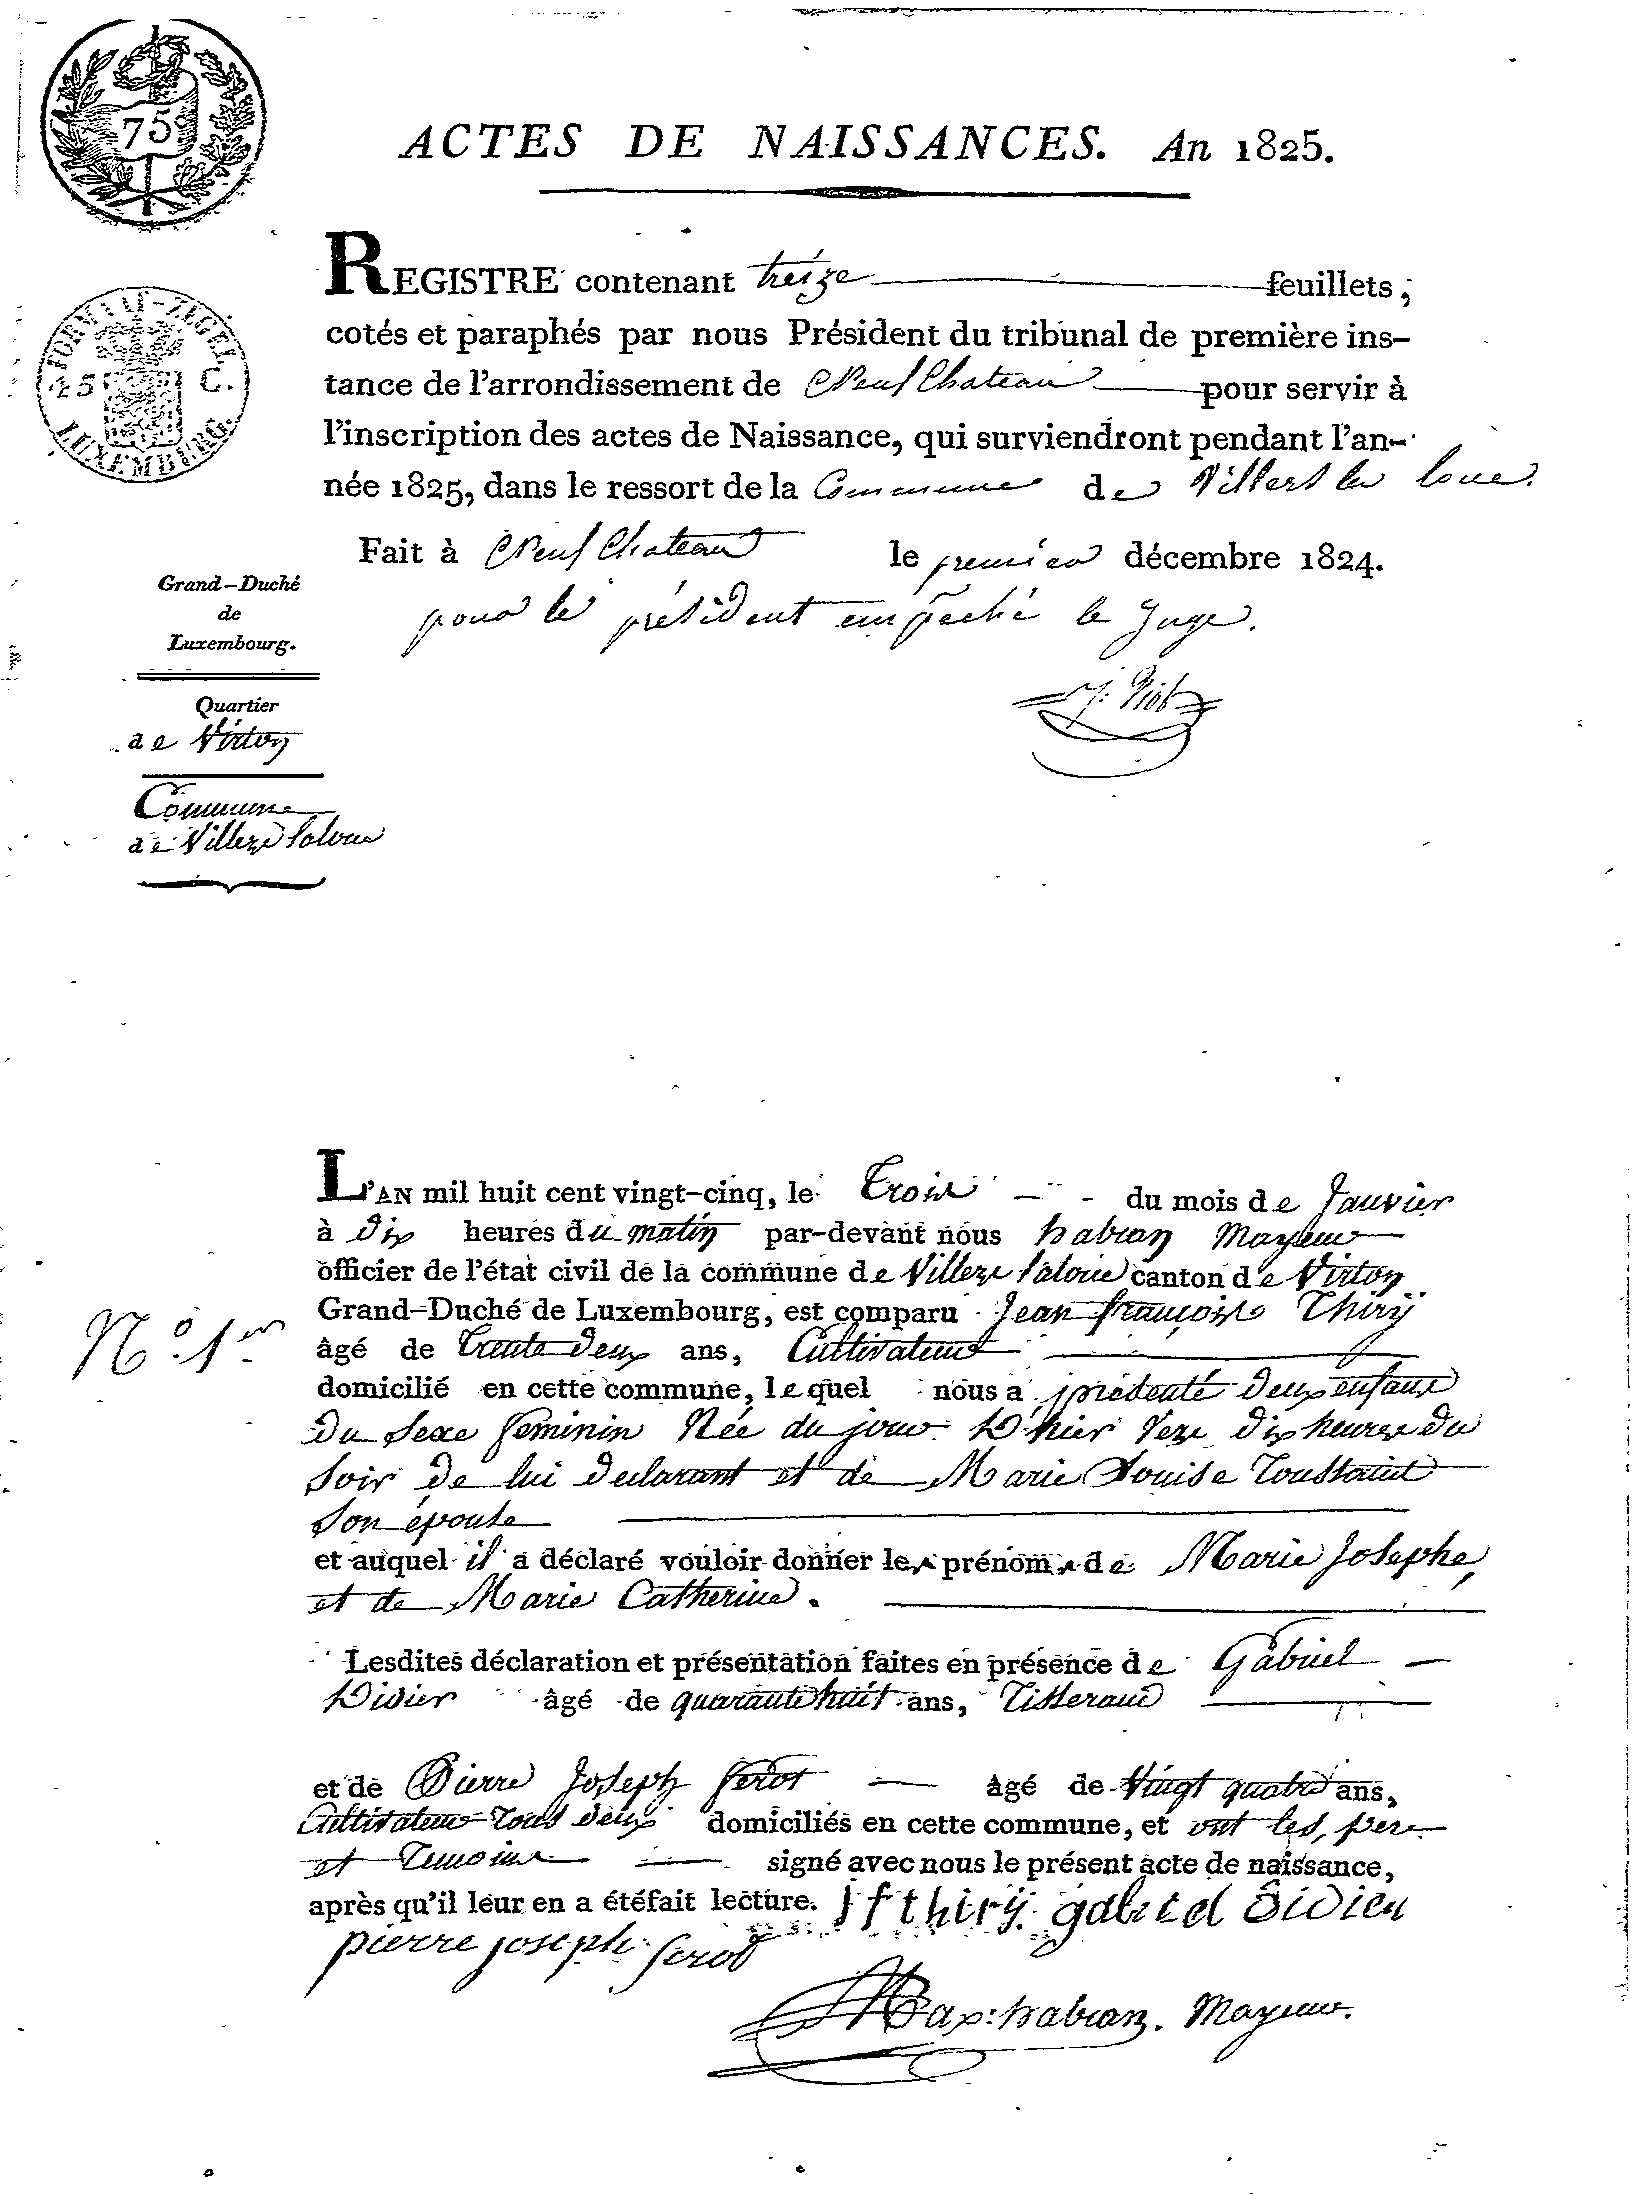 75 c.
ACTES DE NAISSANCES. An 1825.
REGISTRE contenant treize feuillets,
cotés et paraphés par nous Président du tribunal de première ins-
tance de l'arrondissement de Neufchateau pour servir à
l'inscription des actes de Naissance, qui surviendront pendant l'an-
née 1825, dans le ressort de la Commune de Villers la loue.
Fait à Neufchateau le premier décembre 1824.
pour le président empêché le Juge.
FORMAAT-ZEGEL
25 C.
LUXEMBURG.
Grand-Duché
de
Luxembourg.
Quartier
de Virton
Commune
de Villers laloue
L'AN mil huit cent vingt-cinq, le trois du mois de Janvier
à dix heures du matin par-devant nous habran Mayeur
officier de l'état civil de la commune de Villers laloue canton de Virton
Grand-Duché de Luxembourg, est comparu Jean françois Thirÿ
âgé de trente deux ans, Cultivateur
domicilié en cette commune, lequel nous a présenté deux enfans
Du Sexe feminin Née du jour D'hier vers dix heures du
soir de lui declarant et de Marie Louise Toussaint
Son épouse
et auquel il a déclaré vouloir donner les prénoms de Marie Josephe,
et de Marie Catherine.
N.o 1er
Lesdites déclaration et présentation faites en présence de Gabriel
Didier âgé de quarante huit ans, Tisserand
et de Pierre Joseph Gerot âgé de vingt quatre ans,
Cultivateur tous deux domiciliés en cette commune, et ont les, pere
et Temoins signé avec nous le présent acte de naissance,
après qu'il leur en a été fait lecture. J f thirÿ. gabriel didier
pierre joseph gerot
Max: habran. Mayeur.